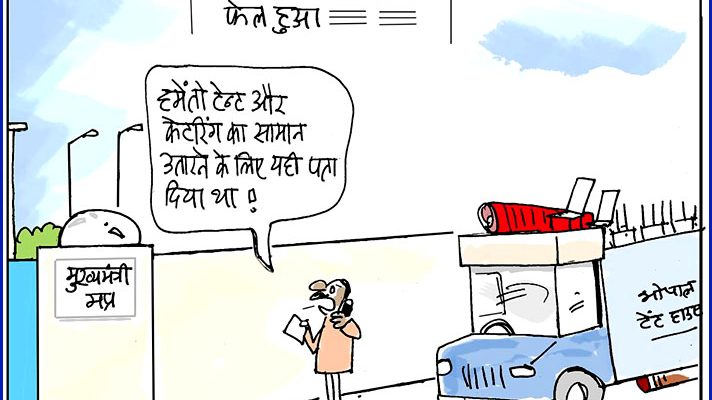 फेल हुआ
हमें तो टेन्ट और
केटरिंग का सामान
उतारने के लिए यही पता
दिया था !
मुख्यमंत्री
मप्र
भोपाल
टेंट हाउस